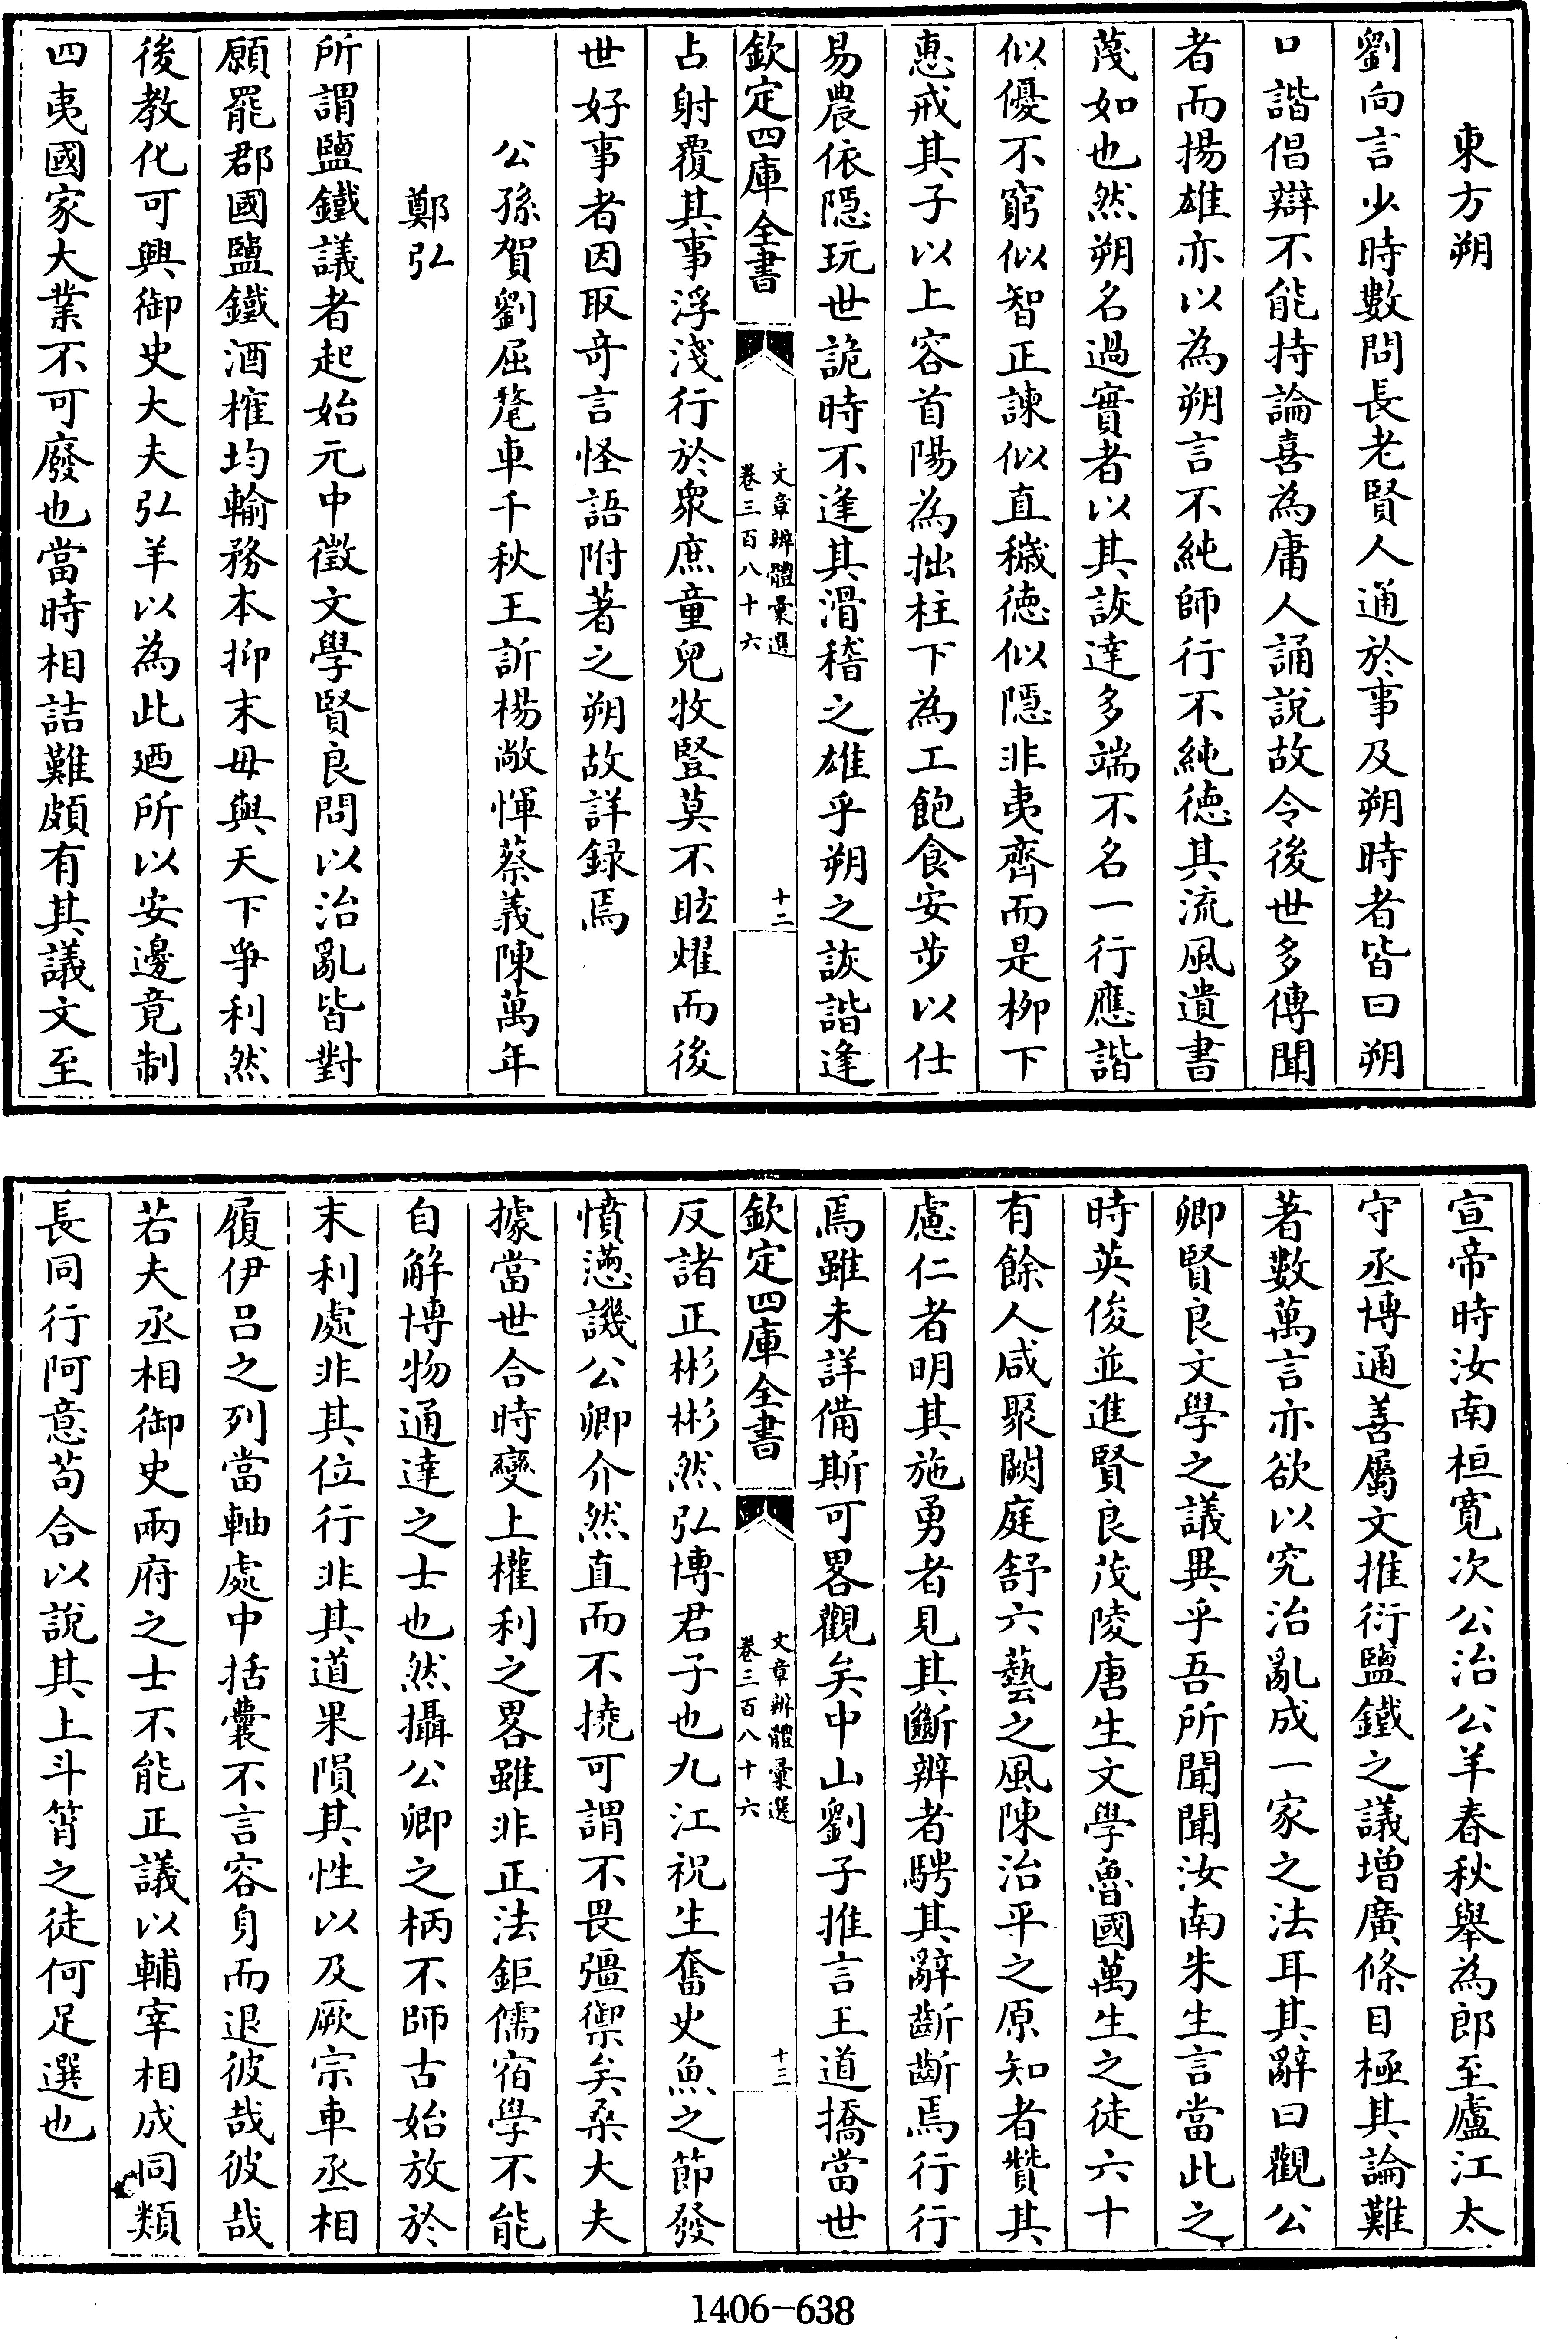 東方朔
劉向言少時數問長老賢人通於事及朔時者皆曰朔
口諧倡辯不能持論喜為庸人誦說故令後世多傳聞
者而揚雄亦以為朔言不純師行不純徳其流風遺書
蔑如也然朔名過實者以其詼達多端不名一行應諧
似優不窮似智正諫似直穢徳似隠非夷齊而是柳下
惠戒其子以上容首陽為拙柱下為工飽食安步以仕
易農依隠玩世詭時不逢其滑稽之雄乎朔之詼諧逢
欽定四庫全書
文章辨體彙選
卷三百八十六
十二
占射覆其事浮淺行於衆庶童兒牧豎莫不眩燿而後
世好事者因取奇言怪語附著之朔故詳録焉
公孫賀劉屈氂車千秋王訢楊敞惲蔡義陳萬年
鄭弘
所謂鹽鐵議者起始元中徵文學賢良問以治亂皆對
願罷郡國鹽鐵酒榷均輸務本抑末毋與天下爭利然
後教化可興御史大夫弘羊以為此廼所以安邊竟制
四夷國家大業不可廢也當時相詰難頗有其議文至
宣帝時汝南桓寛次公治公羊春秋舉為郎至廬江太
守丞博通善屬文推衍鹽鐵之議增廣條目極其論難
著數萬言亦欲以究治亂成一家之法耳其辭曰觀公
卿賢良文學之議異乎吾所聞聞汝南朱生言當此之
時英俊並進賢良茂陵唐生文學魯國萬生之徒六十
有餘人咸聚闕庭舒六藝之風陳治平之原知者贊其
慮仁者明其施勇者見其斷辨者騁其辭齗齗焉行行
焉雖未詳備斯可畧觀矣中山劉子推言王道撟當世
欽定四庫全書
文章辨體彙選
卷三百八十六
十三
反諸正彬彬然弘博君子也九江祝生奮史魚之節發
憤懣譏公卿介然直而不撓可謂不畏彊禦矣桑大夫
據當世合時變上權利之畧雖非正法鉅儒宿學不能
自解博物通達之士也然攝公卿之柄不師古始放於
末利處非其位行非其道果隕其性以及厥宗車丞相
履伊呂之列當軸處中括囊不言容身而退彼哉彼哉
若夫丞相御史兩府之士不能正議以輔宰相成同類
長同行阿意苟合以說其上斗筲之徒何足選也
1406-638